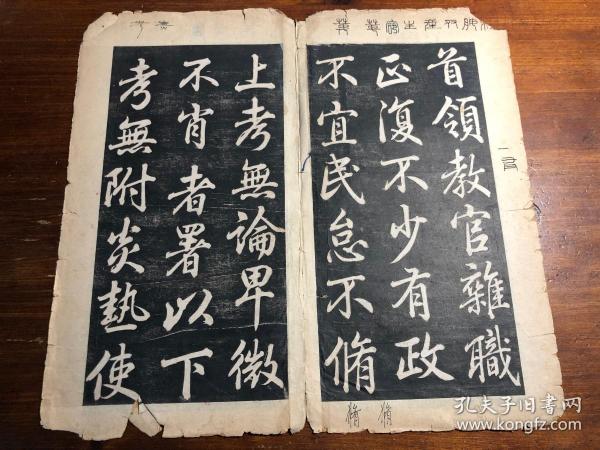 首領教官雜職
正復不少有政
不宜民怠不脩
上考無論卑微
不肖者署以下
考無附炎熱使
孔夫子旧书网
www.kongfz.com